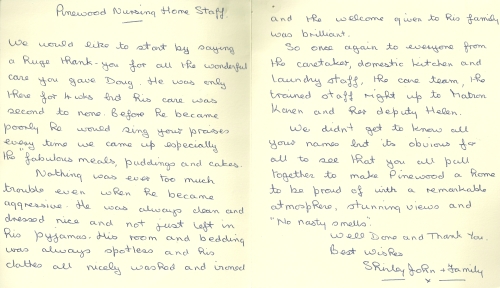 Pinewood Nursing Home Staff.
We would like to start by saying
a huge thank-you for all the wonderful
care you gave Doug. He was only
there for 4 wks but his care was
second to none. Before he became
poorly he would sing your praises
every time we came up especially
the "fabulous meals, puddings and cakes.
Nothing was ever too much
trouble even when he became
aggressive. He was always clean and
dressed nice and not just left in
his pyjamas. His room and bedding
was always spotless and his
clothes all nicely washed and ironed
and the welcome given to his family
was brilliant.
So once again to everyone from
the caretaker, domestic kitchen and
laundry staff, the care team, the
trained staff right up to Matron
Karen and her deputy Helen.
We didn't get to know all
your names but its obvious for
all to see that you all pull
together to make Pinewood a home
to be proud of with a remarkable
atmosphere, stunning views and
"No nasty smells".
Well Done and Thank You.
Best Wishes
Shirley John + Family
x